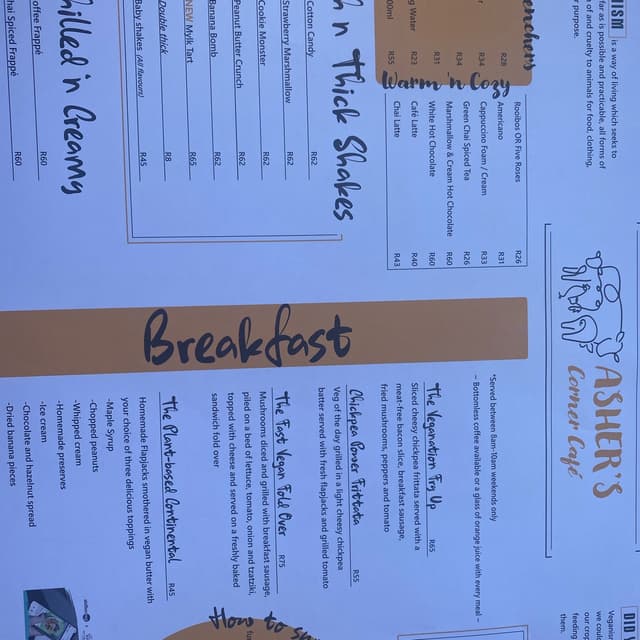 is a way of living which seeks to
far as is possible and practicable, all forms of
of and cruelty to animals for food, clothing,
purpose.
R28
R34
R34
R31
R23
R55
Warm 'n Cozy
Rooibos OR Five Roses R26
Americano R31
Cappuccino Foam / Cream R33
Green Chai Spiced Tea R26
Marshmallow & Cream Hot Chocolate R60
White Hot Chocolate R60
Café Latte R40
Chai Latte R43
n Thick Shakes
Cotton Candy R62
Strawberry Marshmallow R62
Cookie Monster R62
Peanut Butter Crunch R62
Banana Bomb R62
NEW Mylk Tart R65
Double thick R8
Baby shakes (All flavours) R45
hilled 'n Creamy
offee Frappé R60
hai Spiced Frappé R60
ASHER'S
Corner Café
Breakfast
*Served between 8am-10am weekends only
~ Bottomless coffee available or a glass of orange juice with every meal ~
The Veganation Fry Up R65
Sliced cheesy chickpea frittata served with a
meat-free bacon slice, breakfast sausage,
fried mushrooms, peppers and tomato
Chickpea Power Frittata R55
Veg of the day grilled in a light cheesy chickpea
batter served with fresh flapjacks and grilled tomato
The Fast Vegan Fold Over R75
Mushrooms diced and grilled with breakfast sausage,
piled on a bed of lettuce, tomato, onion and tzatziki,
topped with cheese and served on a freshly baked
sandwich fold over
The Plant-based Continental R45
Homemade Flapjacks smothered in vegan butter with
your choice of three delicious toppings
-Maple Syrup
-Chopped peanuts
-Whipped cream
-Homemade preserves
-Ice cream
-Chocolate and hazelnut spread
-Dried banana pieces
DID
Veganism
we could
our crops
feeding
them.
How to